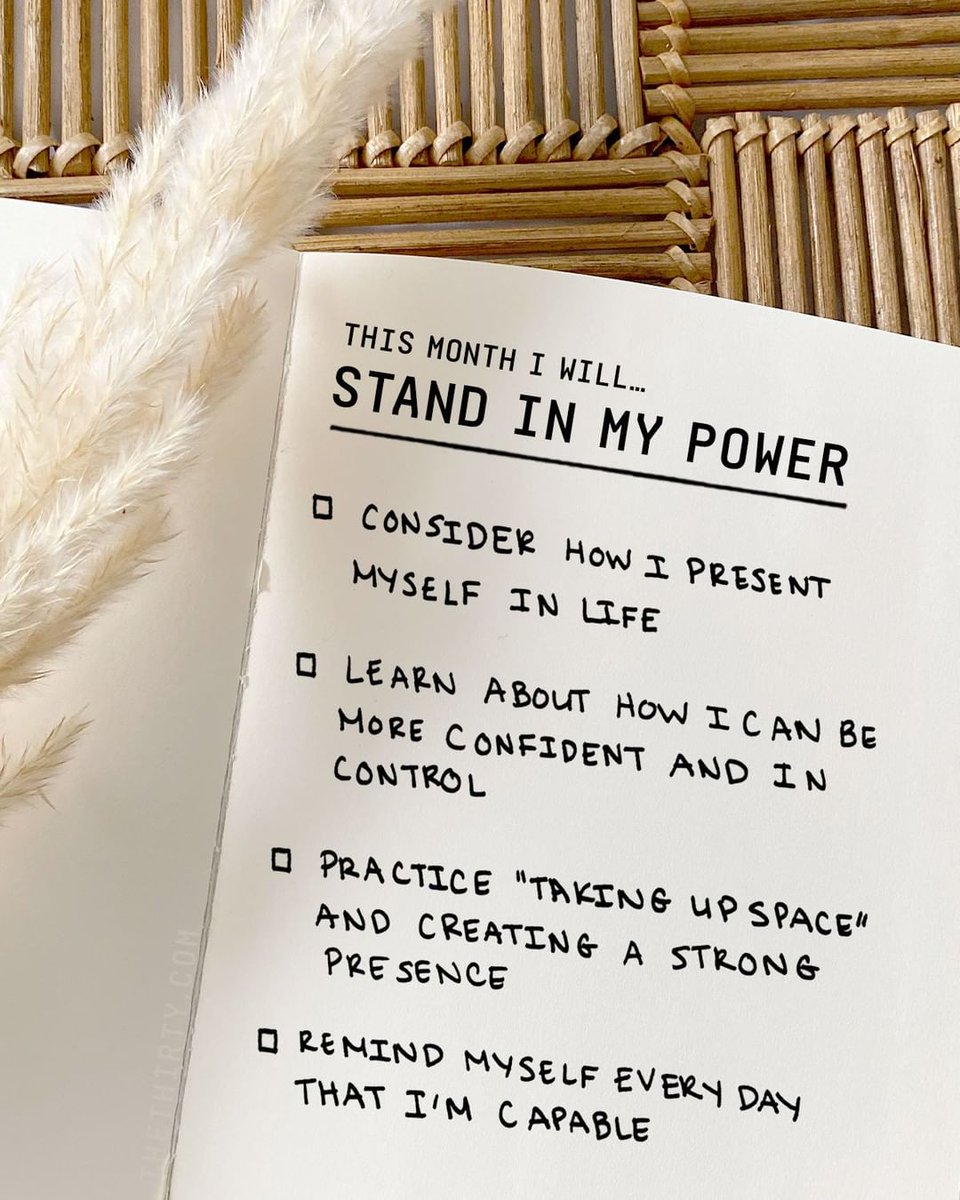 THIS MONTH I WILL...
STAND IN MY POWER
CONSIDER HOW I PRESENT
MYSELF IN LIFE
LEARN ABOUT HOW I CAN BE
MORE CONFIDENT AND IN
CONTROL
PRACTICE "TAKING UP SPACE"
AND CREATING A STRONG
PRESENCE
REMIND MYSELF EVERY DAY
THAT I'M CAPABLE
THETHIRTY.COM